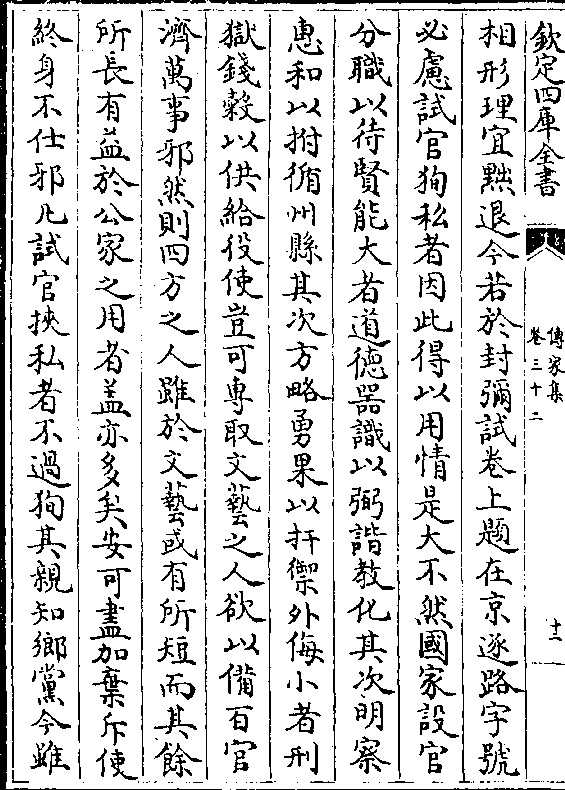 欽定四庫全書
傳家集
卷三十二
十二
相形理宜黜退今若於封彌試卷上題在京逐路字號
必慮試官狥私者因此得以用情是大不然國家設官
分職以待賢能大者道德器識以弼諧教化其次明察
惠和以拊循州縣其次方略勇果以扞禦外侮小者刑
獄錢穀以供給役使豈可專取文藝之人欲以備百官
濟萬事邪然則四方之人雖於文藝或有所短而其餘
所長有益於公家之用者蓋亦多矣安可盡加棄斥使
終身不仕邪凡試官挾私者不過狥其親知鄉黨今雖